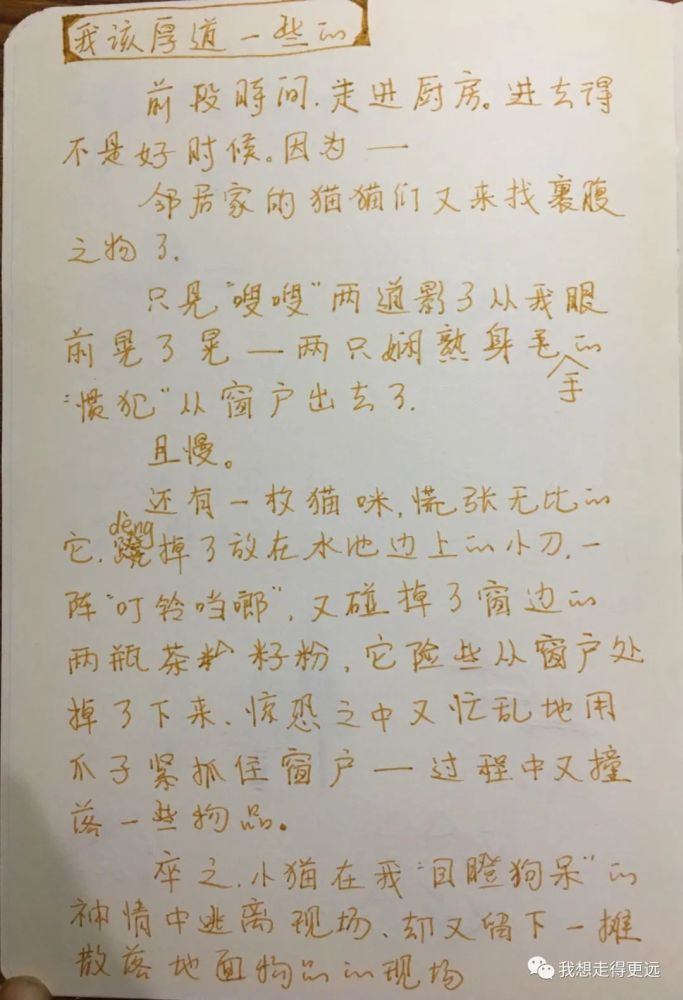 我该厚道一些的
前段時间.走进厨房。进去得
不是好时候。因为—
邻居家的猫猫们又来找裹腹
之物了.
只见“嗖嗖”两道影了从我眼
前晃了晃—两只娴熟身毛的
手
“惯犯”从窗户出去了.
且慢。
还有一枚猫咪,慌张无比的
dèng
它.蹬掉了放在水池边上的小刀.一
阵“叮铃当啷”,又碰掉了窗边的
两瓶茶籽粉,它险些从窗户处
掉了下来、惊恐之中又忙乱地用
爪子紧抓住窗户—过程中又撞
落一些物品。
卒之.小猫在我“目瞪狗呆”的
神情中逃离现场、却又留下一摊
散落地面物品的现场
我想走得更远